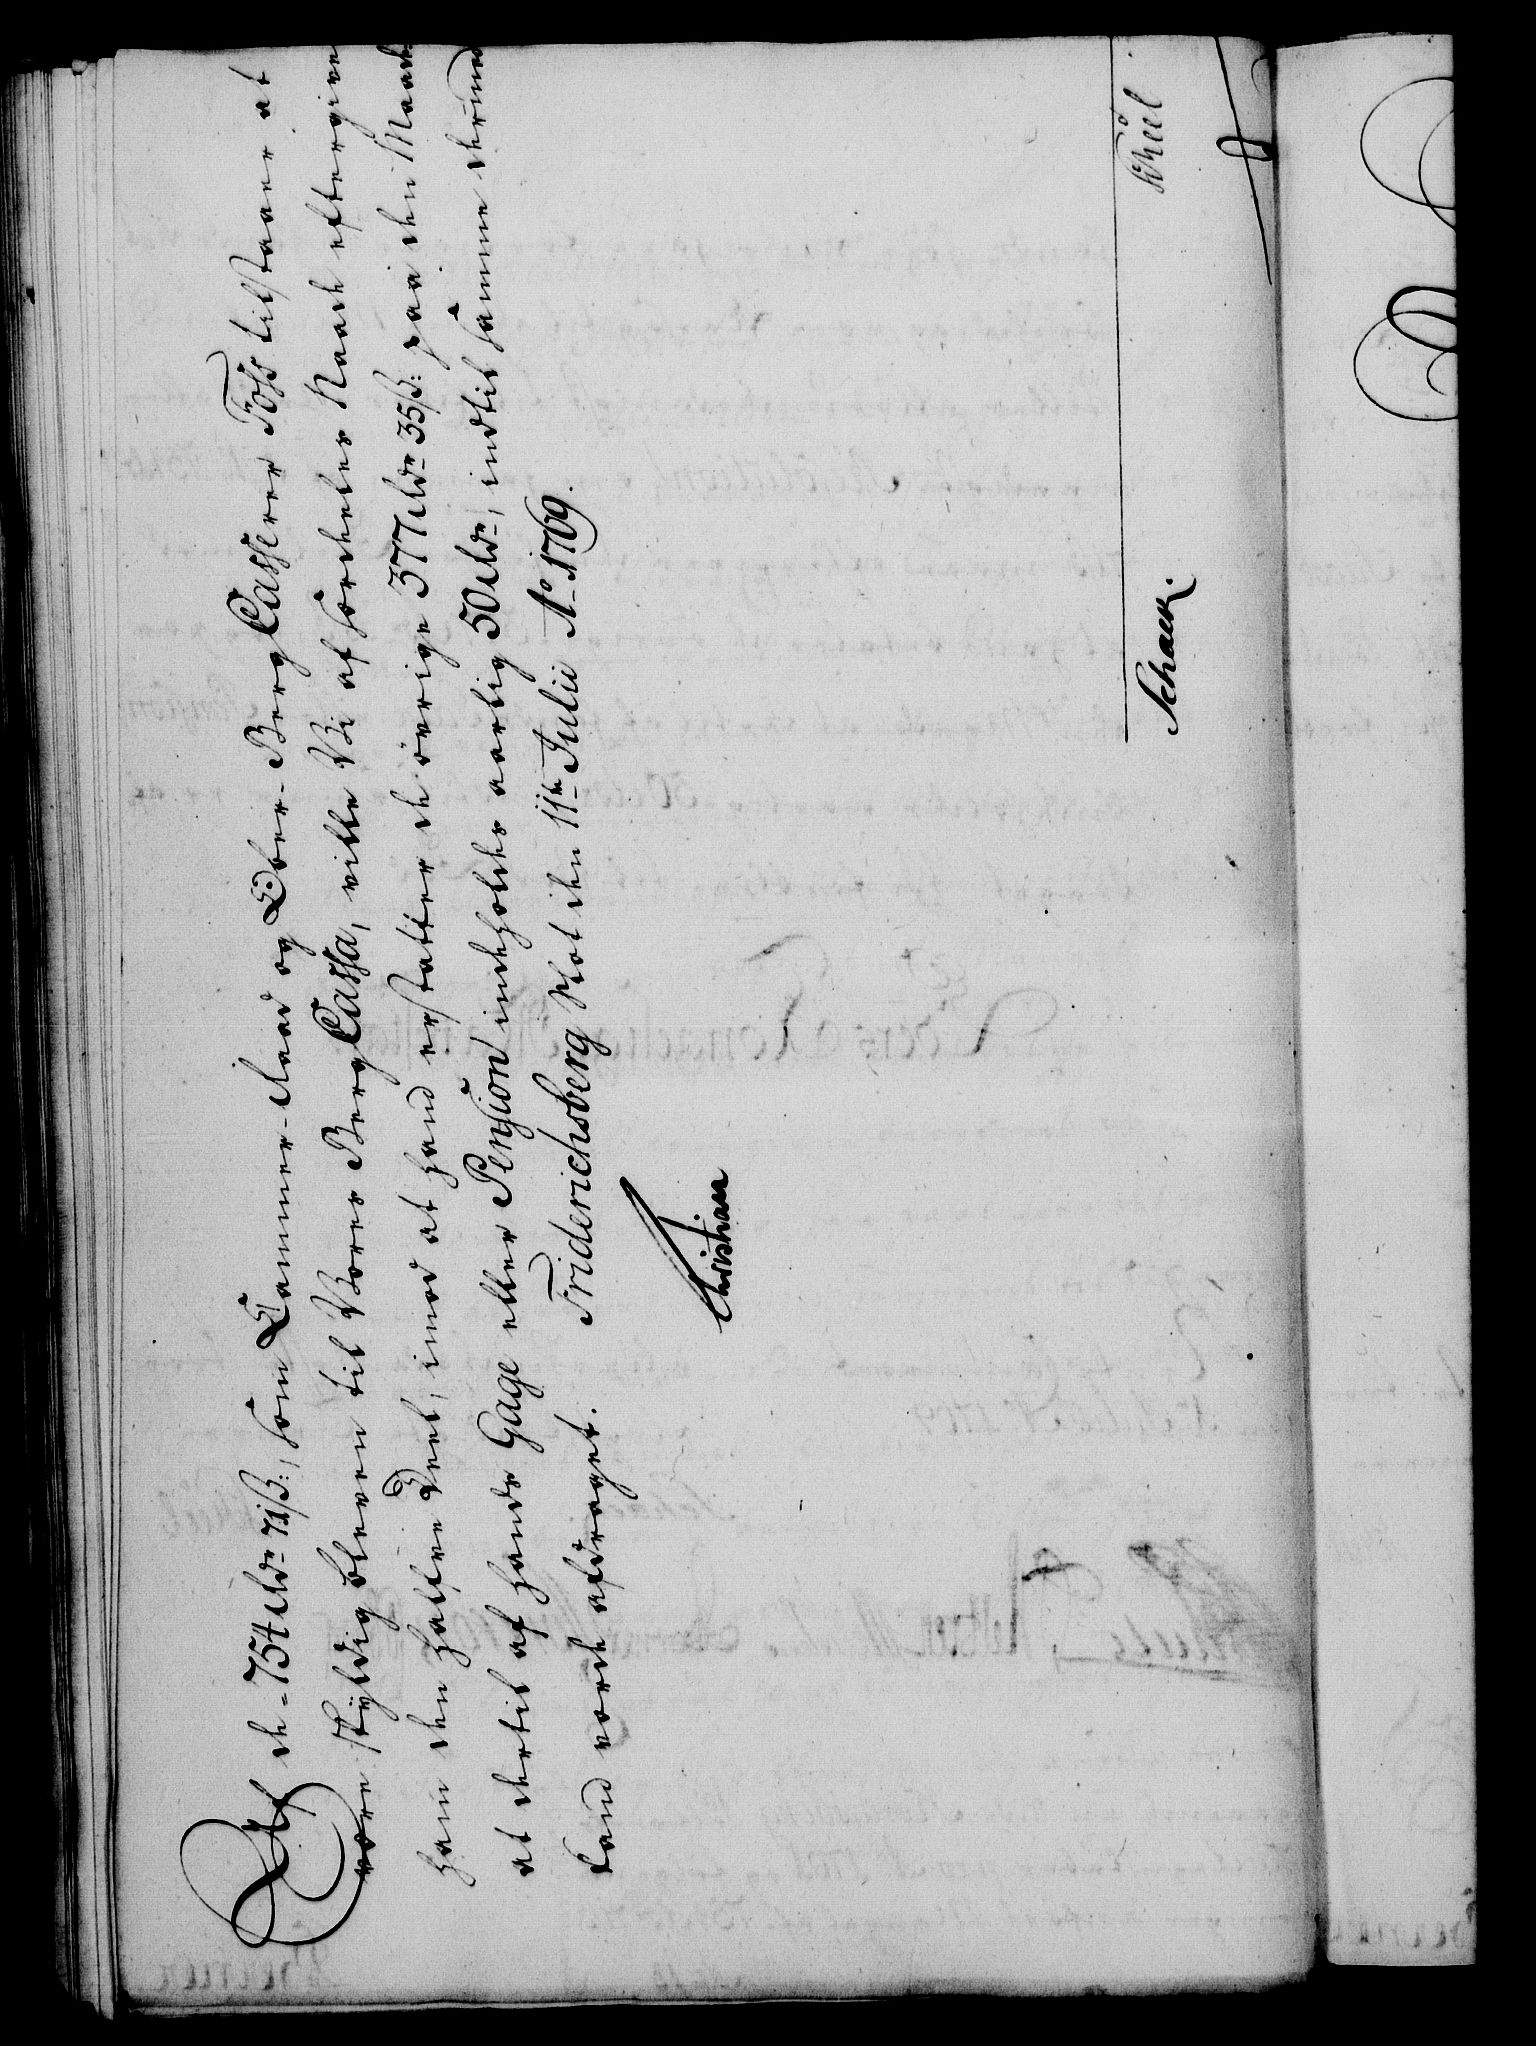 Af de 754 Rdr 71 ß:, som Cammer-Raad og Ober-Berg Casserer Foss tilstaaer at
være skyldig bleven til Vores Berg Cassa, ville Vi af særdeles Naade eftergive
ham den halve Deel, imod at hand erstatter de övrige 377 Rdr 35 ß: paa den Maade
at dertil af hands Gage eller Pension indeholdes aarlig 50 Rdr, indtil samme derimed
kand vorde afdraget. Friderichsberg Slot den 11te Julii Ao 1769.
Christian
Schack.
Theel